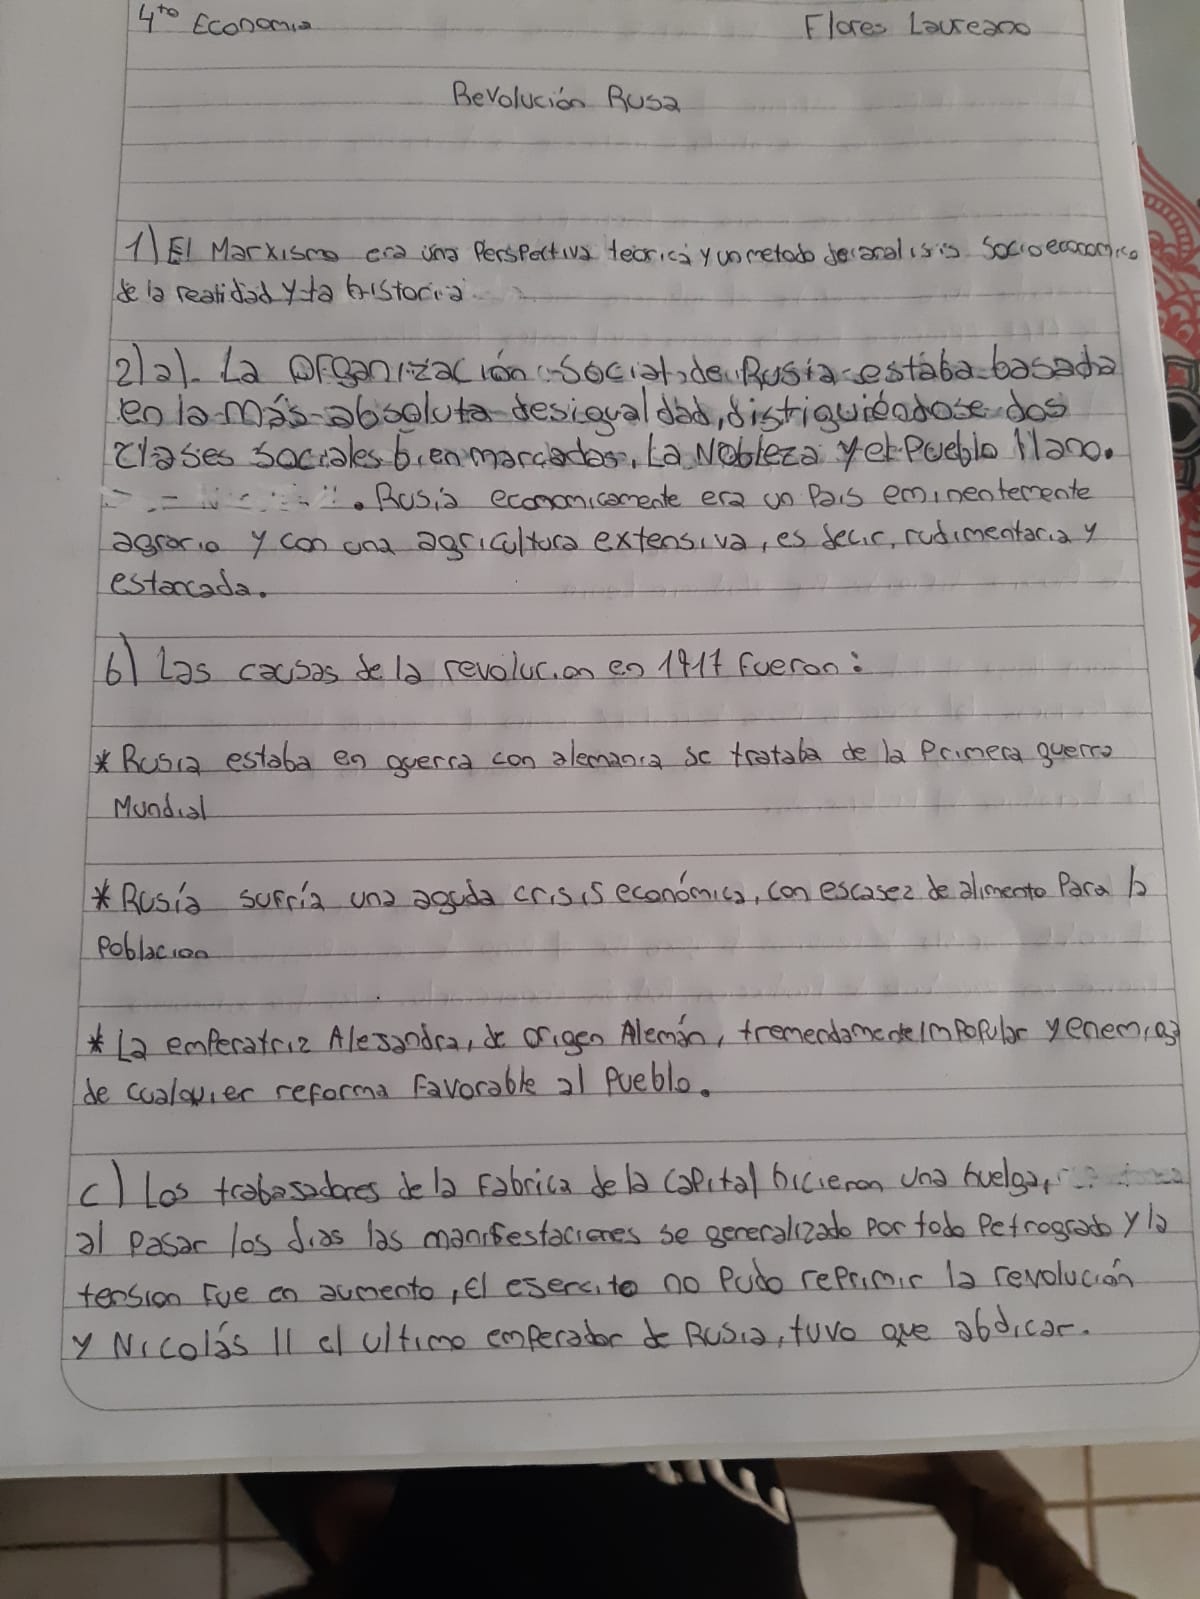 4to Economia
Flores Laureano
Revolución Rusa
1) El Marxismo era una Perspectiva teórica y un metodo de analisis Socioeconomico
de la realidad y la historia
2) a).- La Organización Social de Rusia estaba basada
en la más absoluta desigualdad, distiguiéndose dos
clases sociales bien marcados, La Nobleza y el Pueblo llano.
. Rusia economicamente era un Pais eminentemente
agrario y con una agricultura extensiva, es decir, rudimentaria y
estancada.
b) Las causas de la revolucion en 1917 fueron:
* Rusia estaba en guerra con alemania se trataba de la Primera guerra
Mundial
* Rusía sufría una aguda crisis económica, con escasez de alimento Para la
Poblacion
* La emperatriz Alejandra, de origen Alemán, tremendamente impopular y enemiga
de cualquier reforma Favorable al Pueblo.
c) Los trabajadores de la Fabrica de la Capital hicieron una huelga,
al Pasar los dias las manifestaciones se generalizado Por todo Petrogrado y la
tension Fue en aumento, el esercito no Pudo reprimir la revolución
y Nicolás II el ultimo emperador de Rusia, tuvo que abdicar.